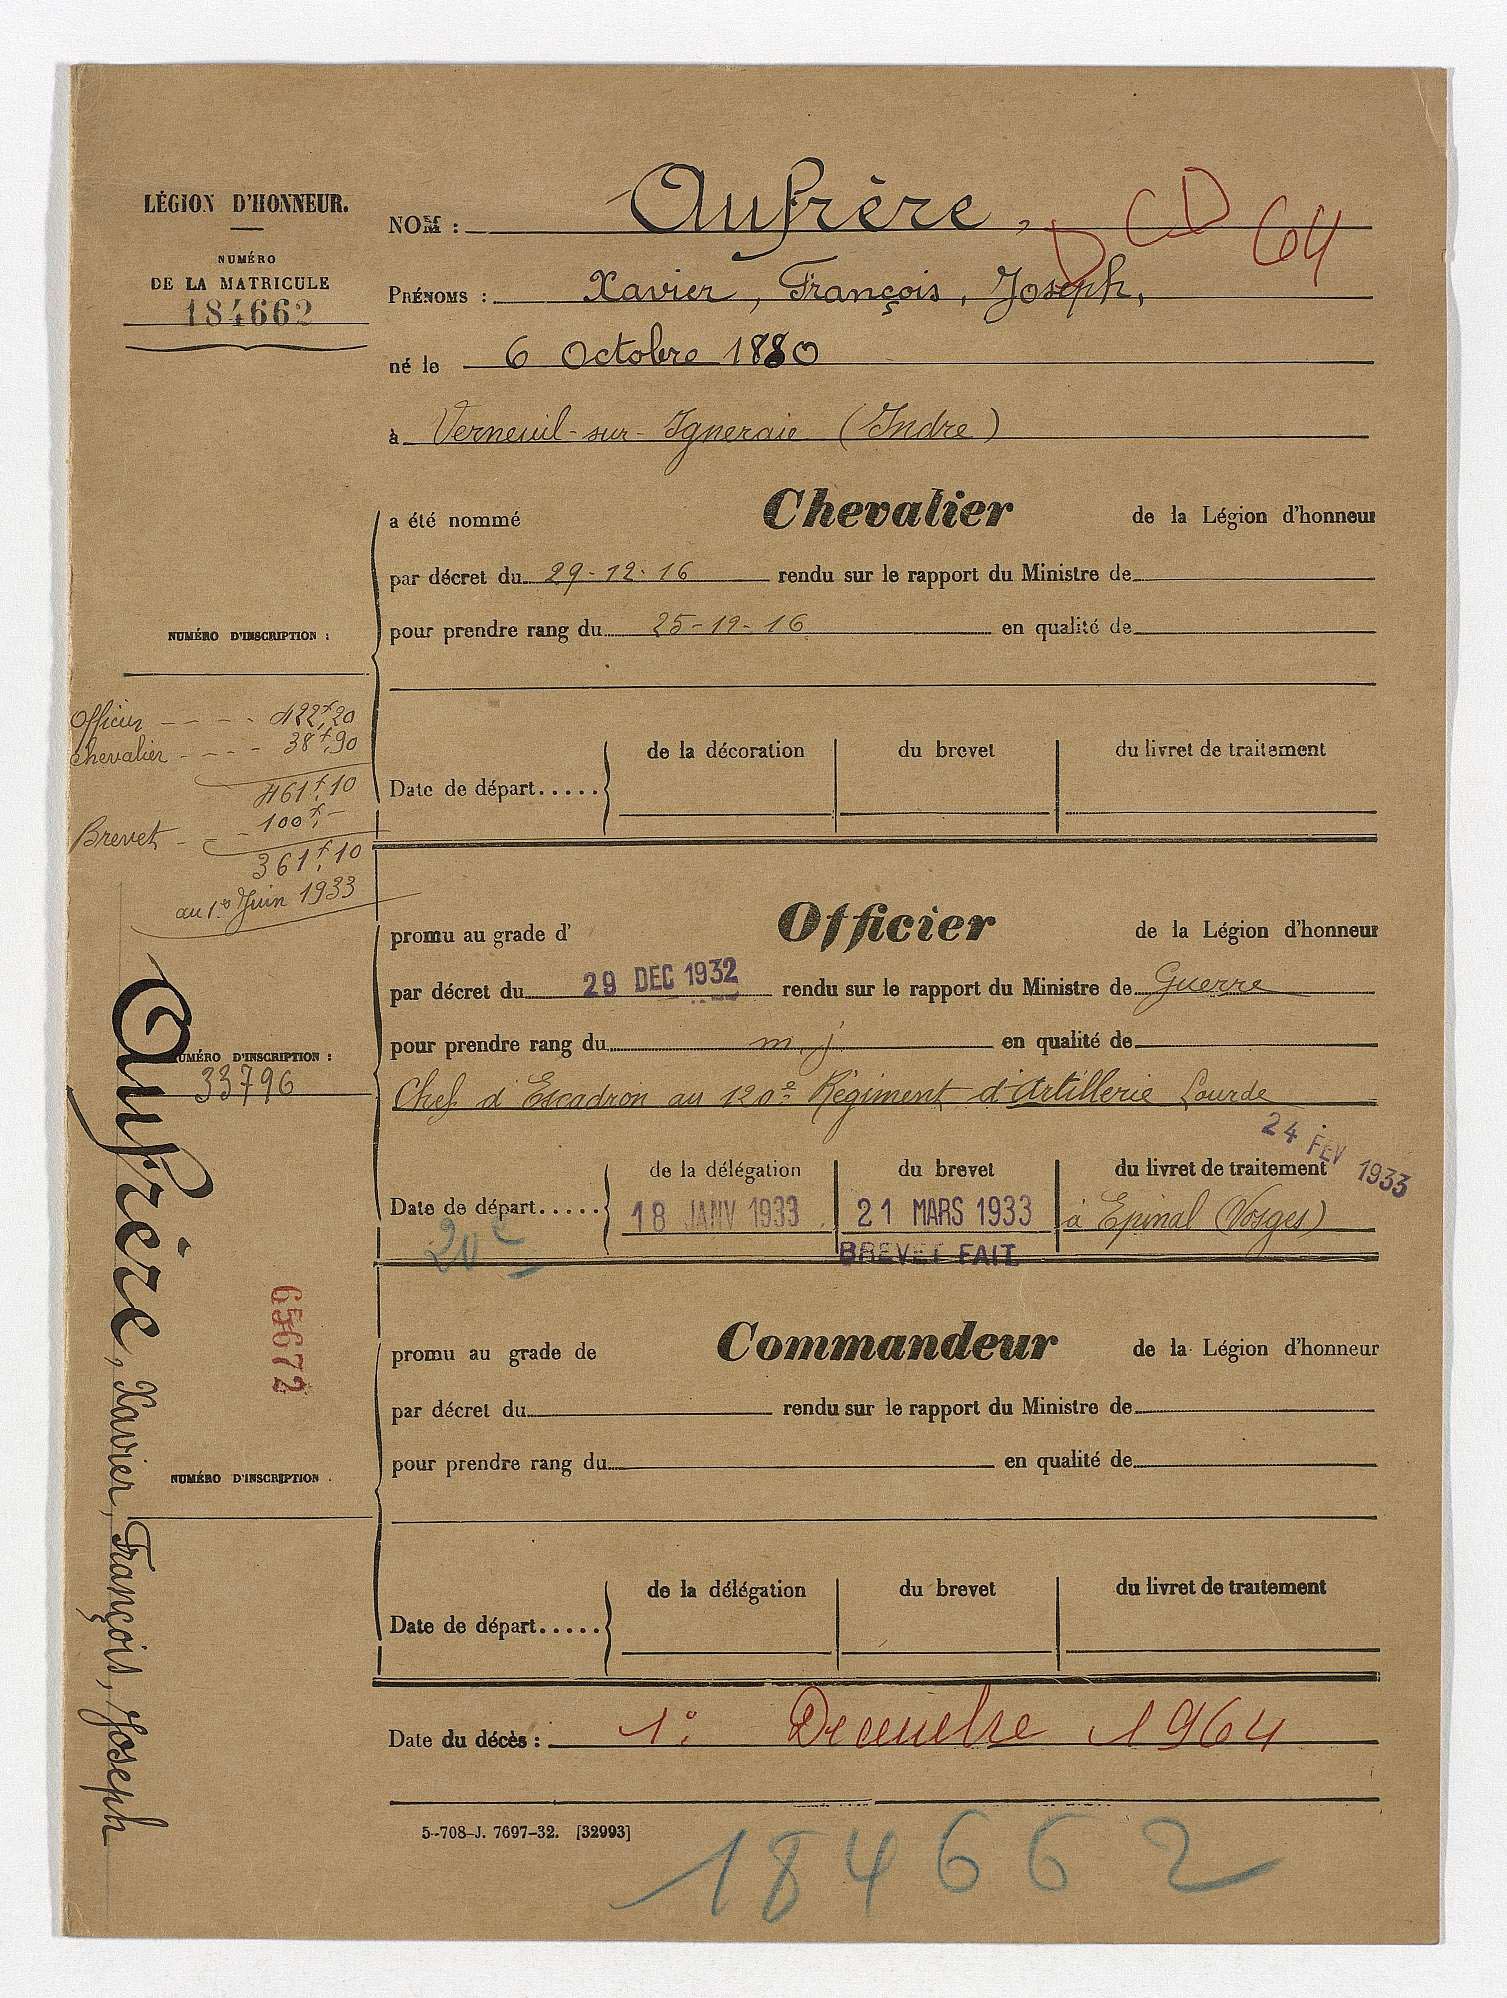 LÉGION D'HONNEUR.
NUMÉRO
DE LA MATRICULE
184662
NOM : Aufrère, D CD 64
PRÉNOMS : Xavier, François, Joseph,
né le 6 Octobre 1880
à Verneuil-sur-Igneraie (Indre)
a été nommé Chevalier de la Légion d'honneur
par décret du 29-12-16 rendu sur le rapport du Ministre de
pour prendre rang du 25-12-16 en qualité de
NUMÉRO D'INSCRIPTION :
Officier ---- 422f,20
Chevalier ---- 38f,90
461f,10
Brevet -- 100f,-
361f,10
au 1er Juin 1933
de la décoration du brevet du livret de traitement
Date de départ.....
promu au grade d' Officier de la Légion d'honneur
par décret du 29 DEC 1932 rendu sur le rapport du Ministre de Guerre
pour prendre rang du m. j en qualité de
NUMÉRO D'INSCRIPTION :
33796
Chef d'Escadron au 120e Régiment d'Artillerie Lourde
24 FEV 1933
de la délégation du brevet du livret de traitement
Date de départ..... 18 JANV 1933 21 MARS 1933 à Epinal (Vosges)
20e
BREVET FAIT
65672
promu au grade de Commandeur de la Légion d'honneur
par décret du rendu sur le rapport du Ministre de
pour prendre rang du en qualité de
NUMÉRO D'INSCRIPTION .
de la délégation du brevet du livret de traitement
Date de départ.....
Date du décès : 1er Decembre 1964
5-708-J. 7697-32. [32993]
184662
Aufrère, Xavier, François, Joseph